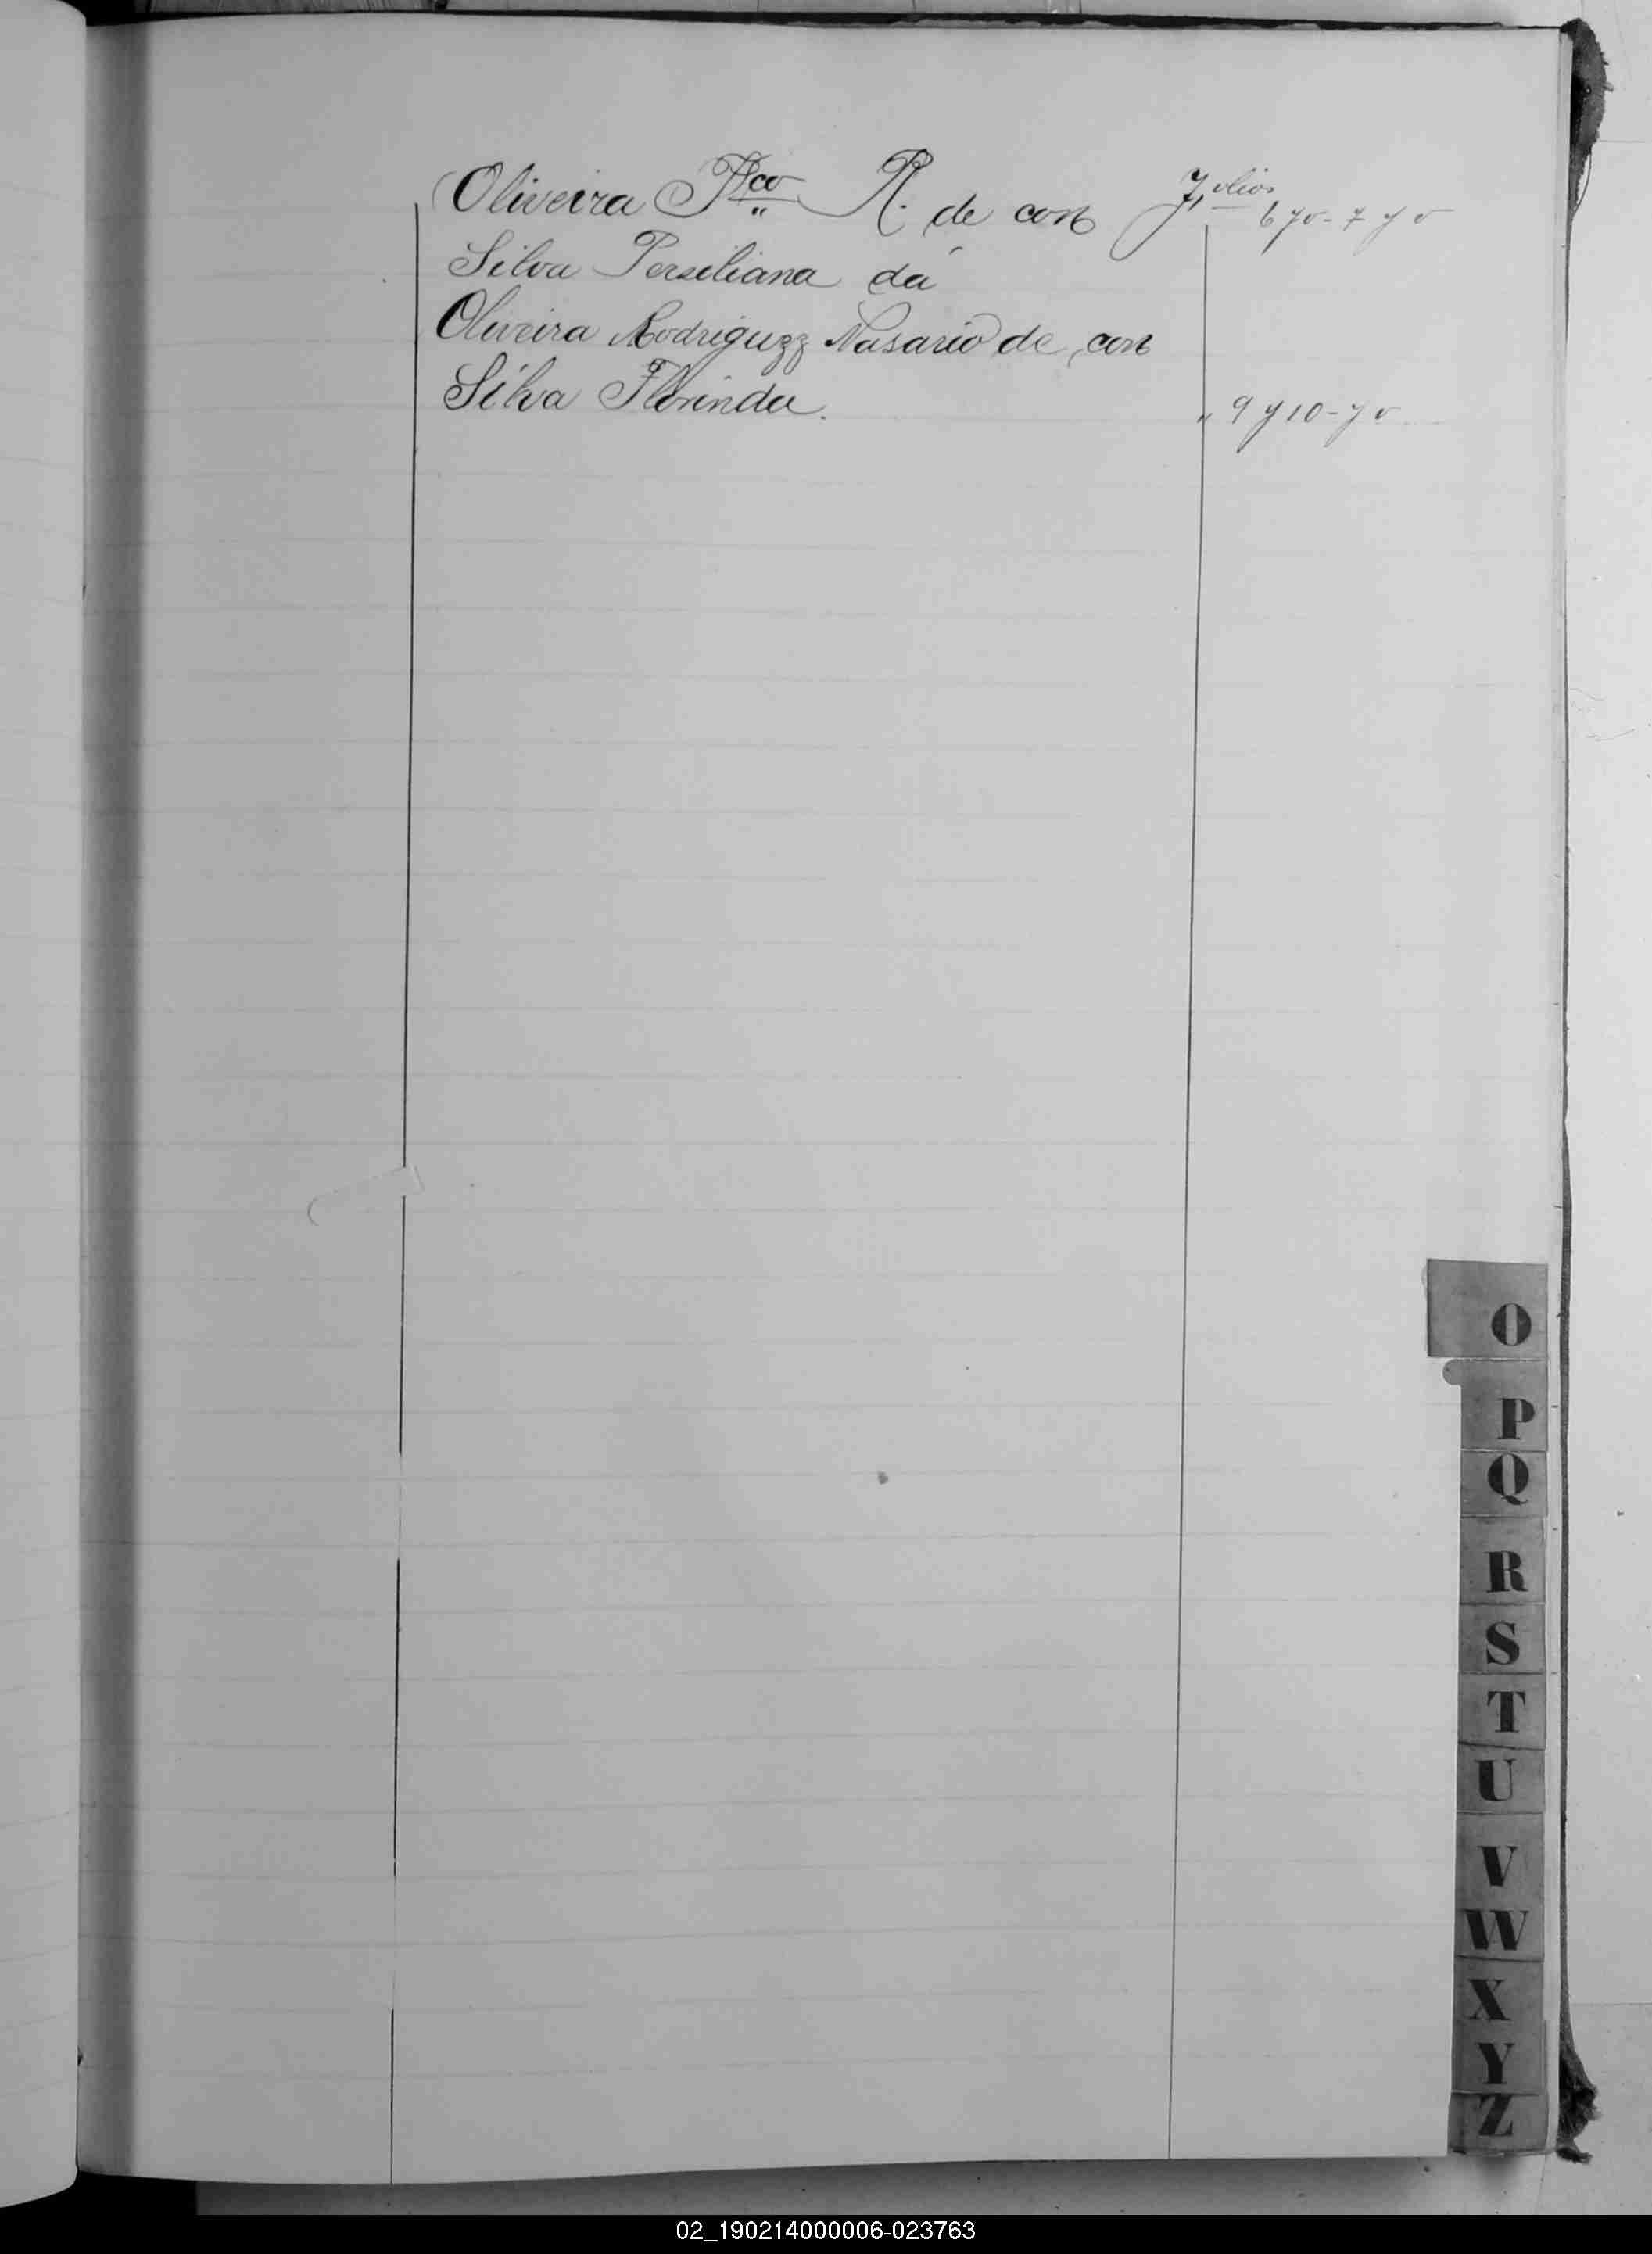 Oliveira Fco R. de con Folios 6 y v - 7 y v
Silva Persiliana da
Oliveira Rodriguez Nasario de, con
Silva Florinda. " 9 y 10 - y v
O
P
Q
R
S
T
U
V
W
X
Y
Z
02_190214000006-023763